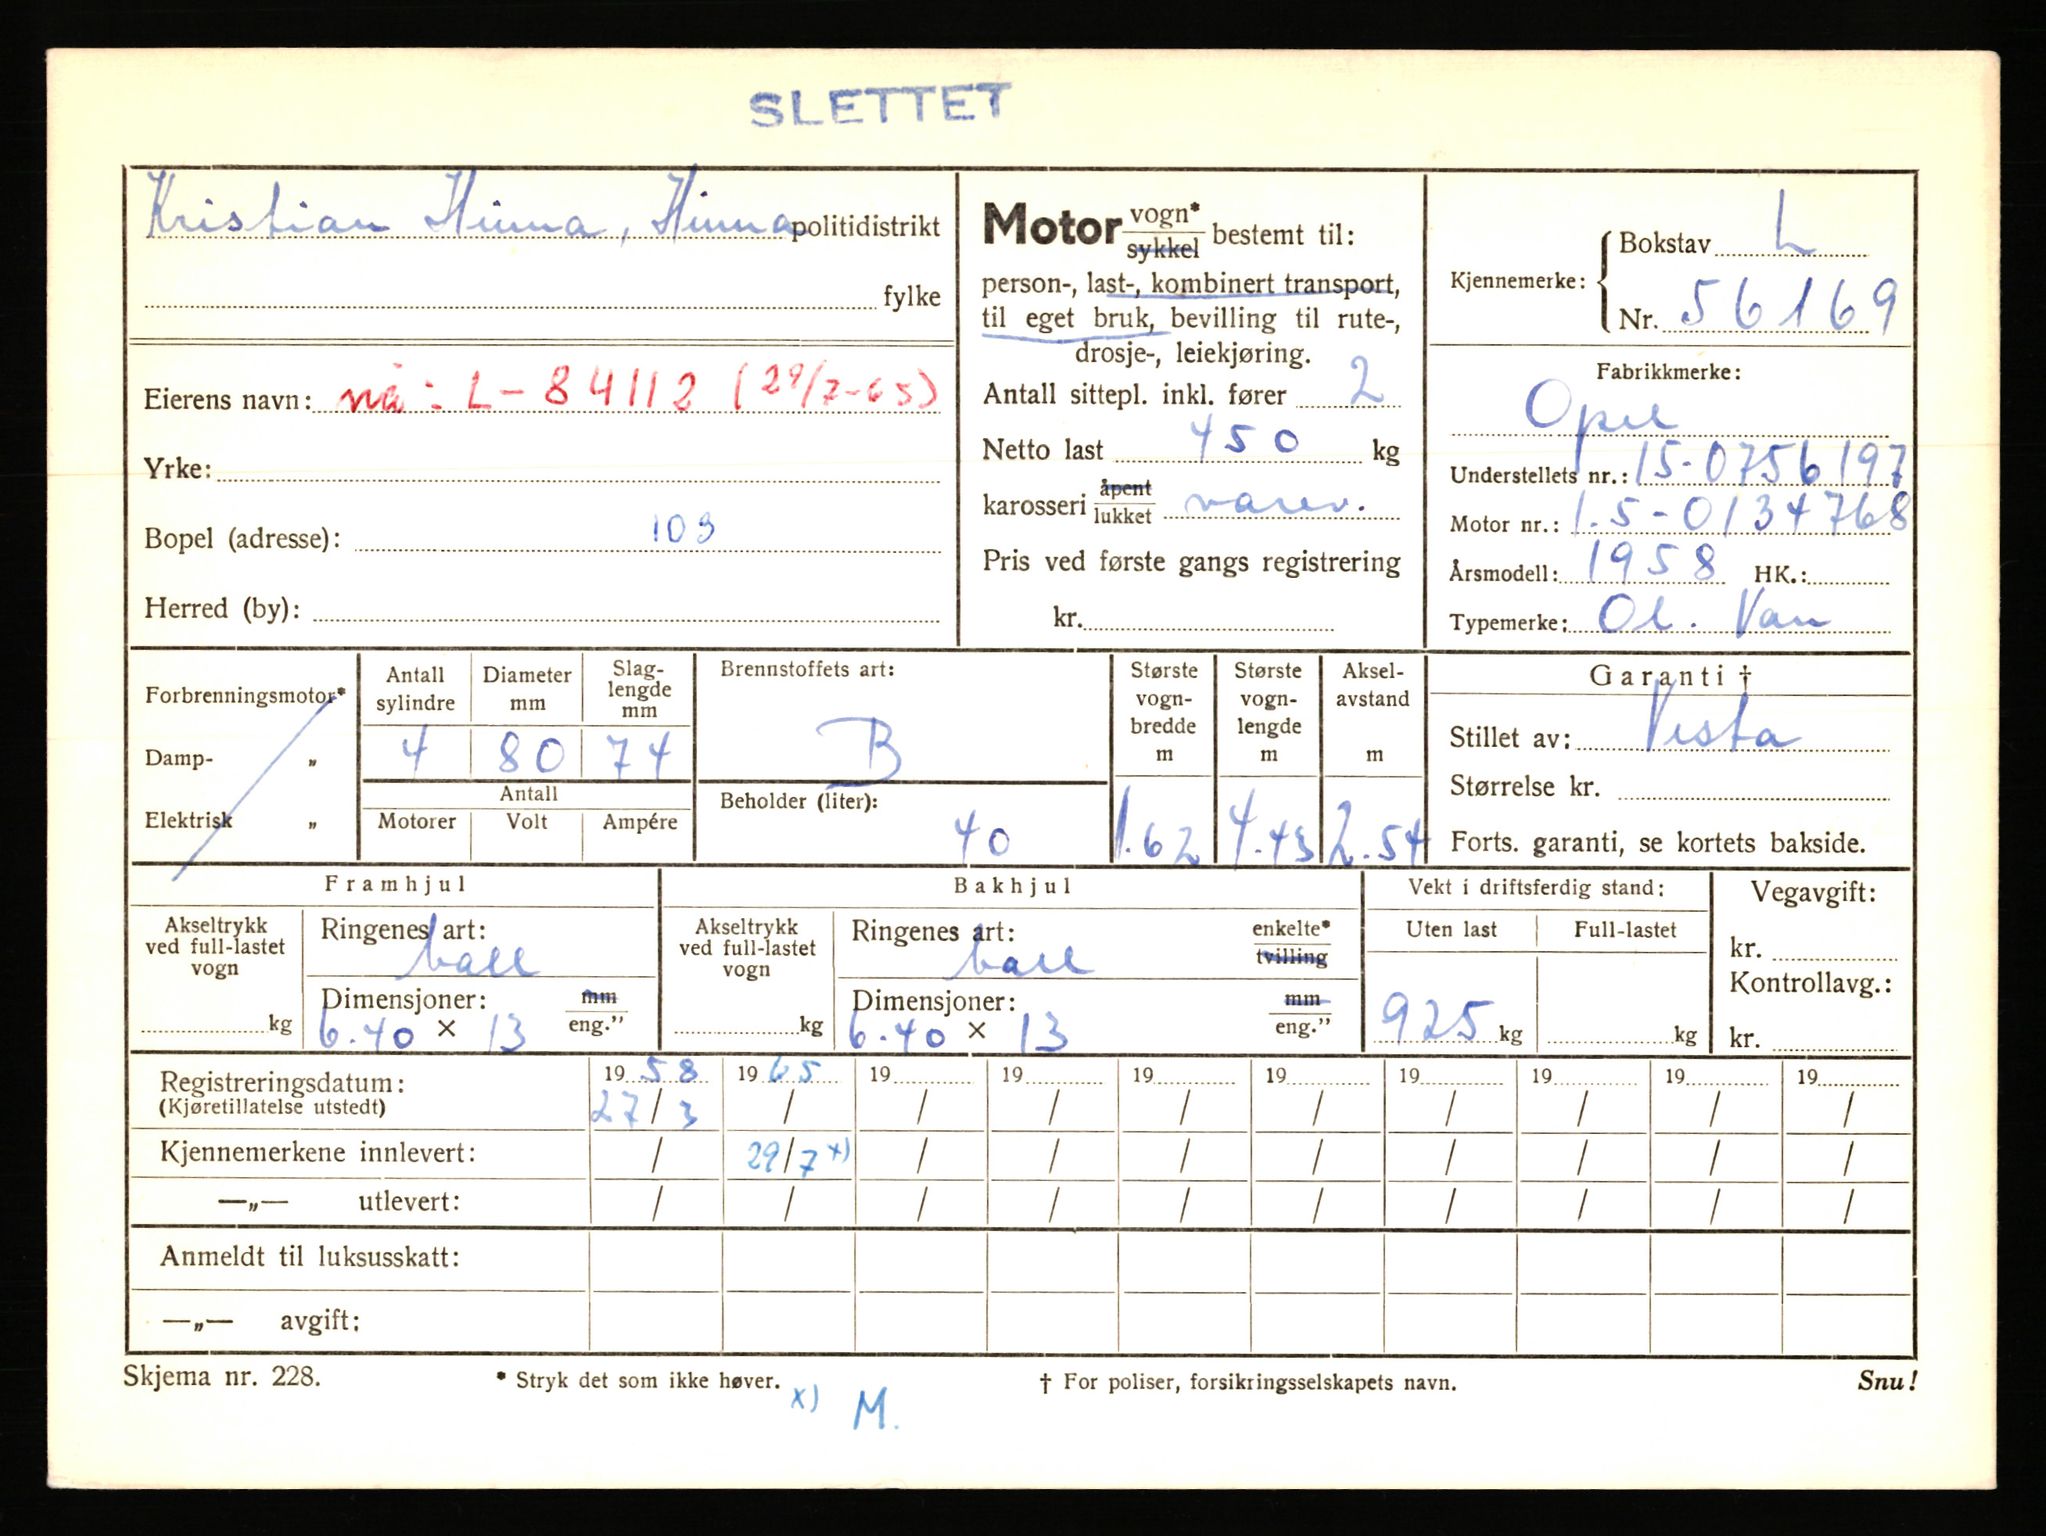 SLETTET
Kristian Hinna, Hinna politidistrikt
fylke
Eierens navn: nå: L-84112 (29/7-65)
Yrke:
Bopel (adresse): 103
Herred (by):
Motor vogn* sykkel bestemt til:
person-, last-, kombinert transport,
til eget bruk, bevilling til rute-,
drosje-, leiekjøring.
Antall sittepl. inkl. fører 2
Netto last 450 kg
karosseri åpent lukket varev.
Pris ved første gangs registrering
kr.
Kjennemerke: Bokstav L
Nr. 56169
Fabrikkmerke:
Opel
Understellets nr.: 15-0756197
Motor nr.: 1.5-0134768
Årsmodell: 1958 HK.:
Typemerke: Ol. Van
Forbrenningsmotor*
Damp- „
Elektrisk „
Antall sylindre Diameter mm Slag-lengde mm
4 80 74
Antall
Motorer Volt Ampére
Brennstoffets art:
B
Beholder (liter):
40
Største vogn-bredde m
1.62
Største vogn-lengde m
4.43
Aksel-avstand m
2.54
Garanti †
Stillet av: Vesta
Størrelse kr.
Forts. garanti, se kortets bakside.
Framhjul
Akseltrykk ved full-lastet vogn
kg
Ringenes art:
ball
Dimensjoner: mm eng."
6.40 × 13
Bakhjul
Akseltrykk ved full-lastet vogn
kg
Ringenes art: enkelte* tvilling
ball
Dimensjoner: mm eng."
6.40 × 13
Vekt i driftsferdig stand:
Uten last Full-lastet
925 kg kg
Vegavgift:
kr.
Kontrollavg.:
kr.
Registreringsdatum: 19 58 19 65 19 19 19 19 19 19 19 19
(Kjøretillatelse utstedt) 27/3 / / / / / / / / /
Kjennemerkene innlevert: / 29/7 x) / / / / / / / /
—„— utlevert: / / / / / / / / / /
Anmeldt til luksusskatt:
—„— avgift:
Skjema nr. 228. * Stryk det som ikke høver. † For poliser, forsikringsselskapets navn. Snu!
x) M.